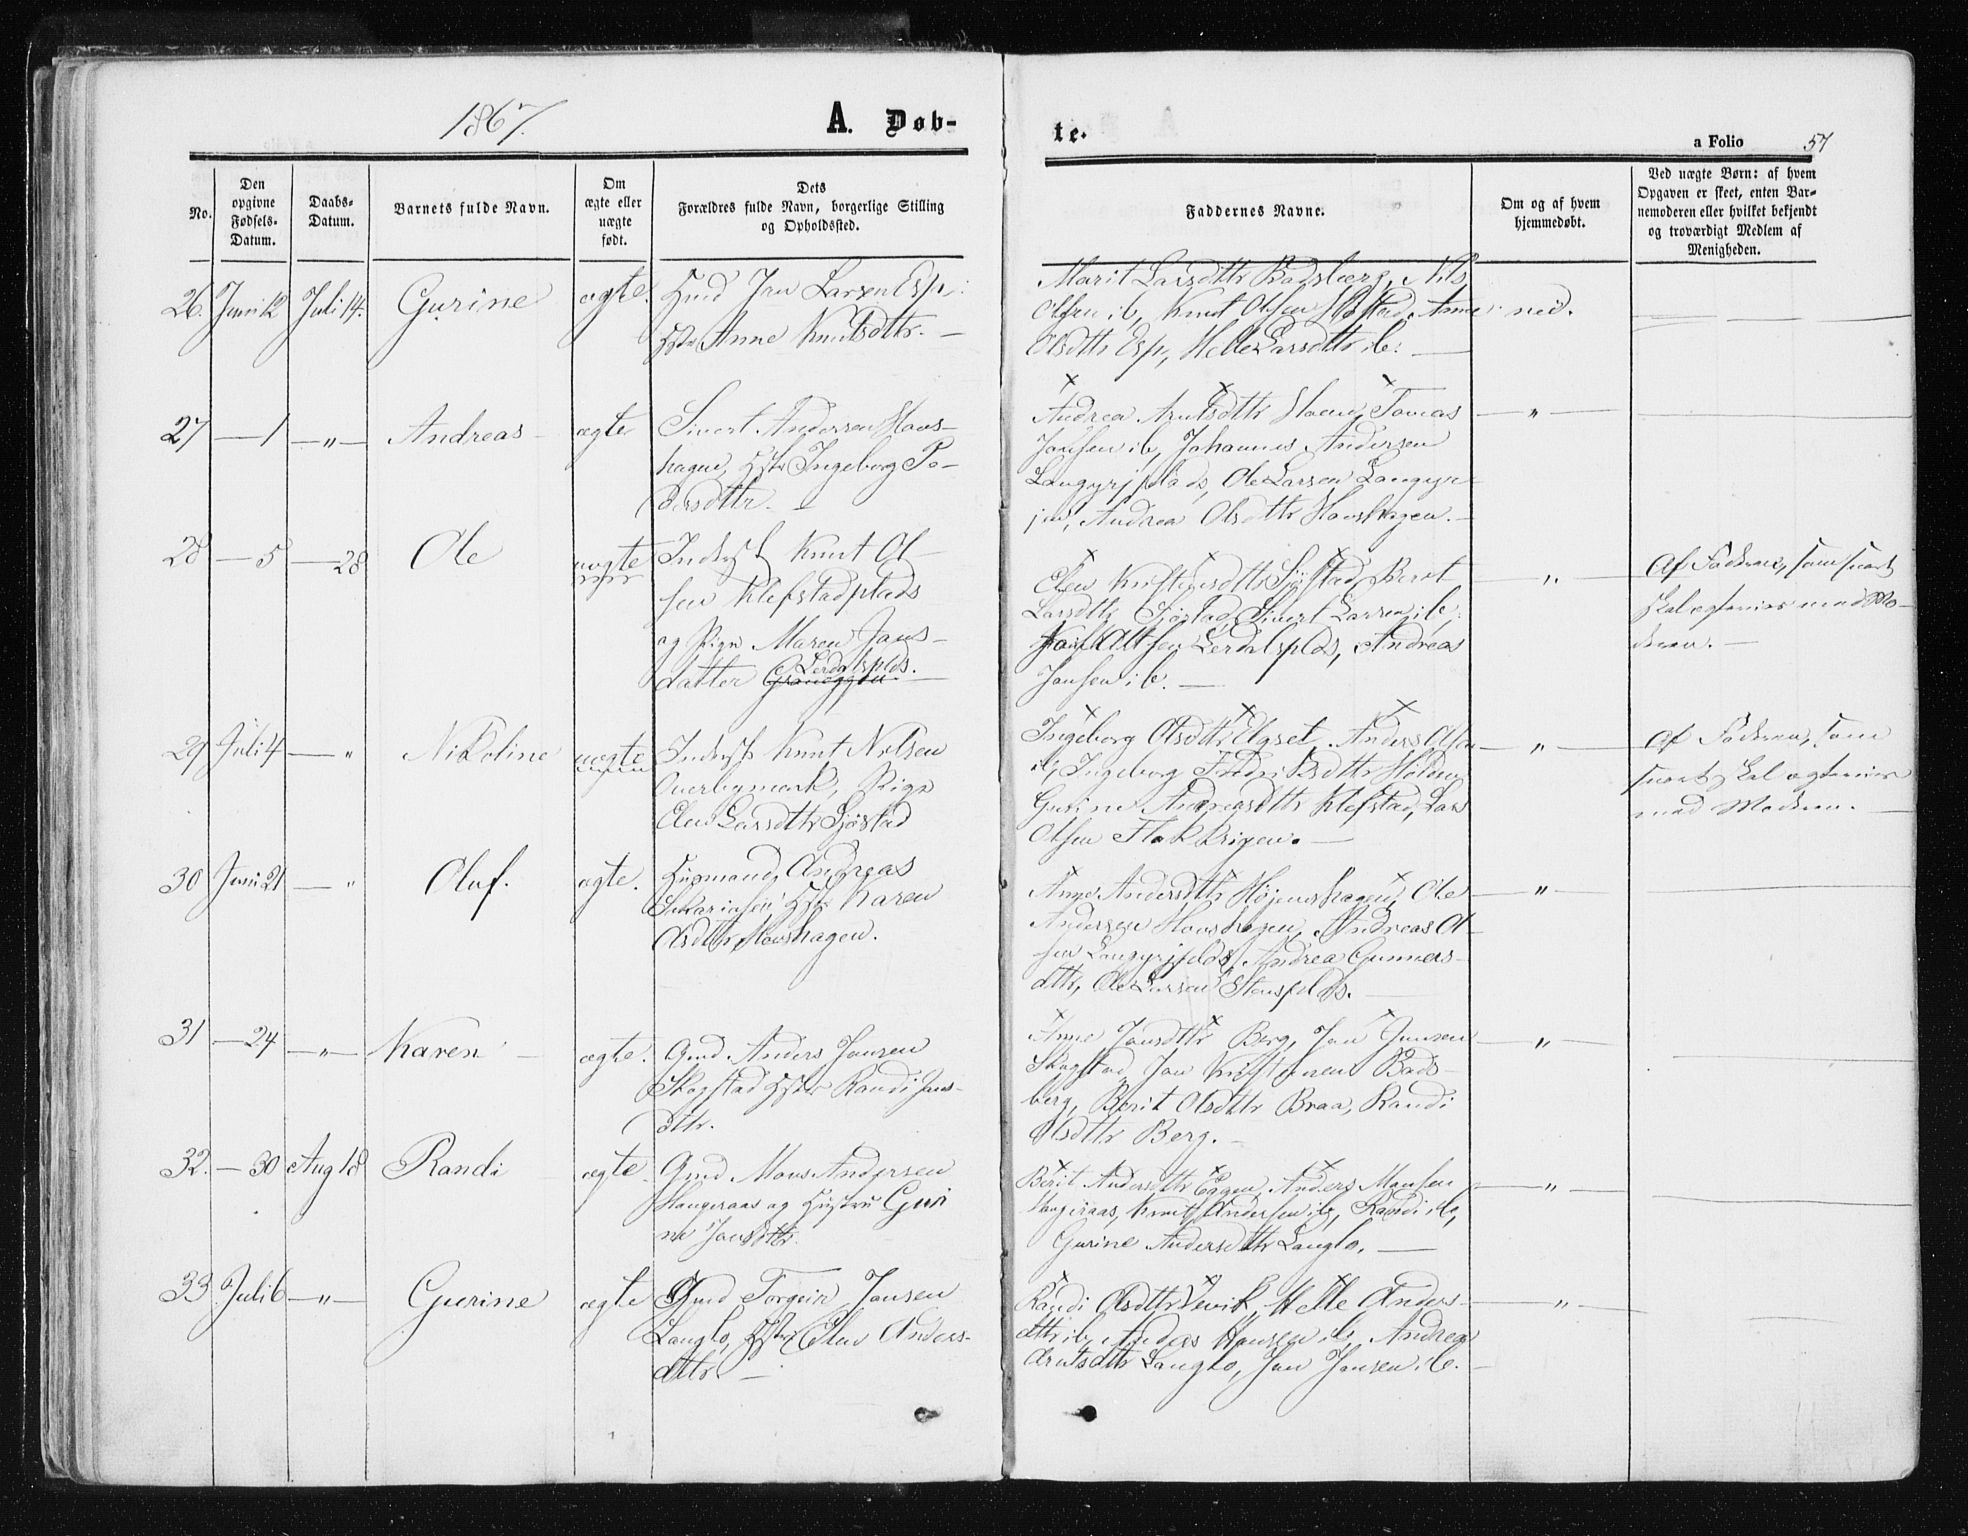 1867.
A. Døb-
te.
a Folio 57
No.
Den opgivne Fødsels-Datum.
Daabs-Datum.
Barnets fulde Navn.
Om ægte eller uægte født.
Dets Forældres fulde Navn, borgerlige Stilling og Opholdssted.
Faddernes Navne.
Om og af hvem hjemmedøbt.
Ved uægte Børn: af hvem Opgaven er skeet, enten Barnemoderen eller hvilket bekjendt og troværdigt Medlem af Menigheden.
26. Juni 12 Juli 14. Gurine ægte.
Jan Larsen Esp,
Anne Knutsdttr. —
Marit Larsdttr Badsberg, Nils
Olsen ib, Knut Olsen Anne
Olsdttr Esp, Larsdttr ib: —
27 — 1 — " — Andreas ægte
Sivert Andersen Hovs-
hagen, Hstr Ingeborg Pe-
dersdttr. —
Andrea Arntsdttr Tomas
Jansen ib, Johannes Andersen
Langørjplads, Ole Larsen Langør
jen, Andrea Olsdttr Hovshagen. —
— " —
28 — 5 — 28 Ole uægte
Inderst Knut Ol-
sen Klefstadplads
og Pige Maren Jans-
datter Lerdalsplds.
Elen Sjøstad, Berit
Larsdttr Sjøstad, Sivert Larsen ib,
Olsen Lerdalsplds, Andreas
Jansen ib. —
— " —
Af Faderen, som snart
skal ægtevies med Mo-
deren. —
29 Juli 4 — " Nikoline uægte
Inderst Knut Nilsen
Overbymark, Pige
Elen Larsdttr Sjøstad
Ingeborg Olsdttr Elgset, Anders Olsen
ib, Ingeborg Fredriksdttr
Gurine Andreasdttr Klefstad, Lars
Olsen —
— " —
Af Faderen, som
snart skal ægtevies
med Moderen. —
30 Juni 21 — " Oluf. ægte.
Husmand Andreas
Hstr Karen
Olsdttr Hovshagen.
Anne Andersdttr Ole
Andersen Hovshagen, Andreas Ol-
sen Langørjplds, Andrea Gunners-
dttr, Ole Larsen —
— " —
31 — 24 — " — Karen — ægte.
Gmd Anders Jansen
Skogstad Hstr Randi Jans-
dttr.
Anne Jansdttr Berg, Jan Jansen
Skogstad, Jan Kristensen Bads-
berg, Berit Olsdttr Braa, Randi
Olsdttr Berg. —
— " —
32. — 30 Aug 18 Randi ægte
Gmd Mons Andersen
Haugeraas og Hustru Guri
ne Jansdttr.
Berit Andersdttr Eggen, Anders Monsen
Haugeraas, Knut Andersen ib, Randi ib,
Gurine Andersdttr Langlo. —
— " —
33 Juli 6 — " — Gurine ægte
Gmd Torgeir Jansen
Langlo, Hstr Elen Anders-
dttr. —
Randi Olsdttr Vevik, Anders-
dttr ib, Andas Hansen ib, Andrea
Arntsdttr Langlo, Jan Jansen ib. —
— " —